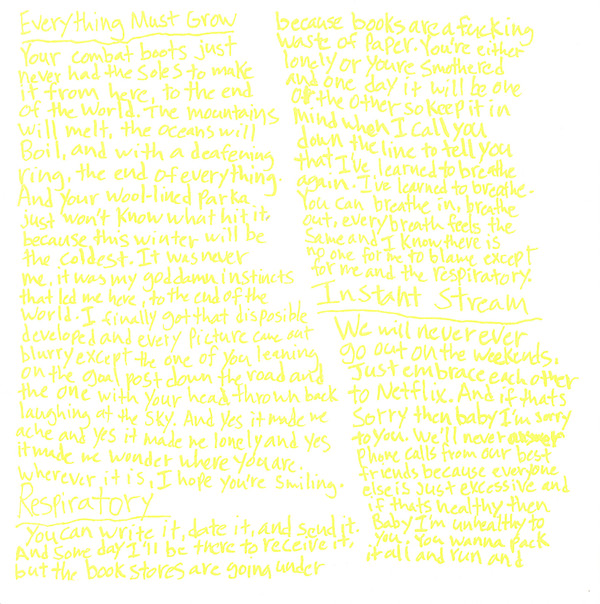 Everything Must Grow
Your combat boots just
never had the soles to make
it from here, to the end
of the world. The mountains
will melt, the oceans will
Boil, and with a deafening
ring, the end of everything.
And your wool-lined Parka
just won't know what hit it,
because this winter will be
the coldest. It was never
me, it was my goddamn instincts
that led me here, to the end of the
world. I finally got that disposible
developed and every picture came out
blurry except the one of you leaning
on the goal post down the road and
the one with your head thrown back
laughing at the sky. And yes it made me
ache and yes it made me lonely and yes
it made me wonder where you are.
wherever it is, I hope you're smiling.
Respiratory
You can write it, date it, and send it.
And some day I'll be there to receive it,
but the book stores are going under
because books are a fucking
waste of paper. You're either
lonely or you're smothered
and one day it will be one
or the other so keep it in
mind when I call you
down the line to tell you
that I've learned to breathe
again. I've learned to breathe.
You can breathe in, breathe
out, every breath feels the
same and I know there is
no one for me to blame except
for me and the respiratory.
Instant Stream
We will never ever
go out on the weekends.
Just embrace each other
to Netflix. And if thats
sorry then baby I'm sorry
to you. We'll never answer
Phone calls from our best
friends because everyone
else is just excessive and
if thats healthy then
Baby I'm unhealthy to
you. You wanna pack
it all and run and